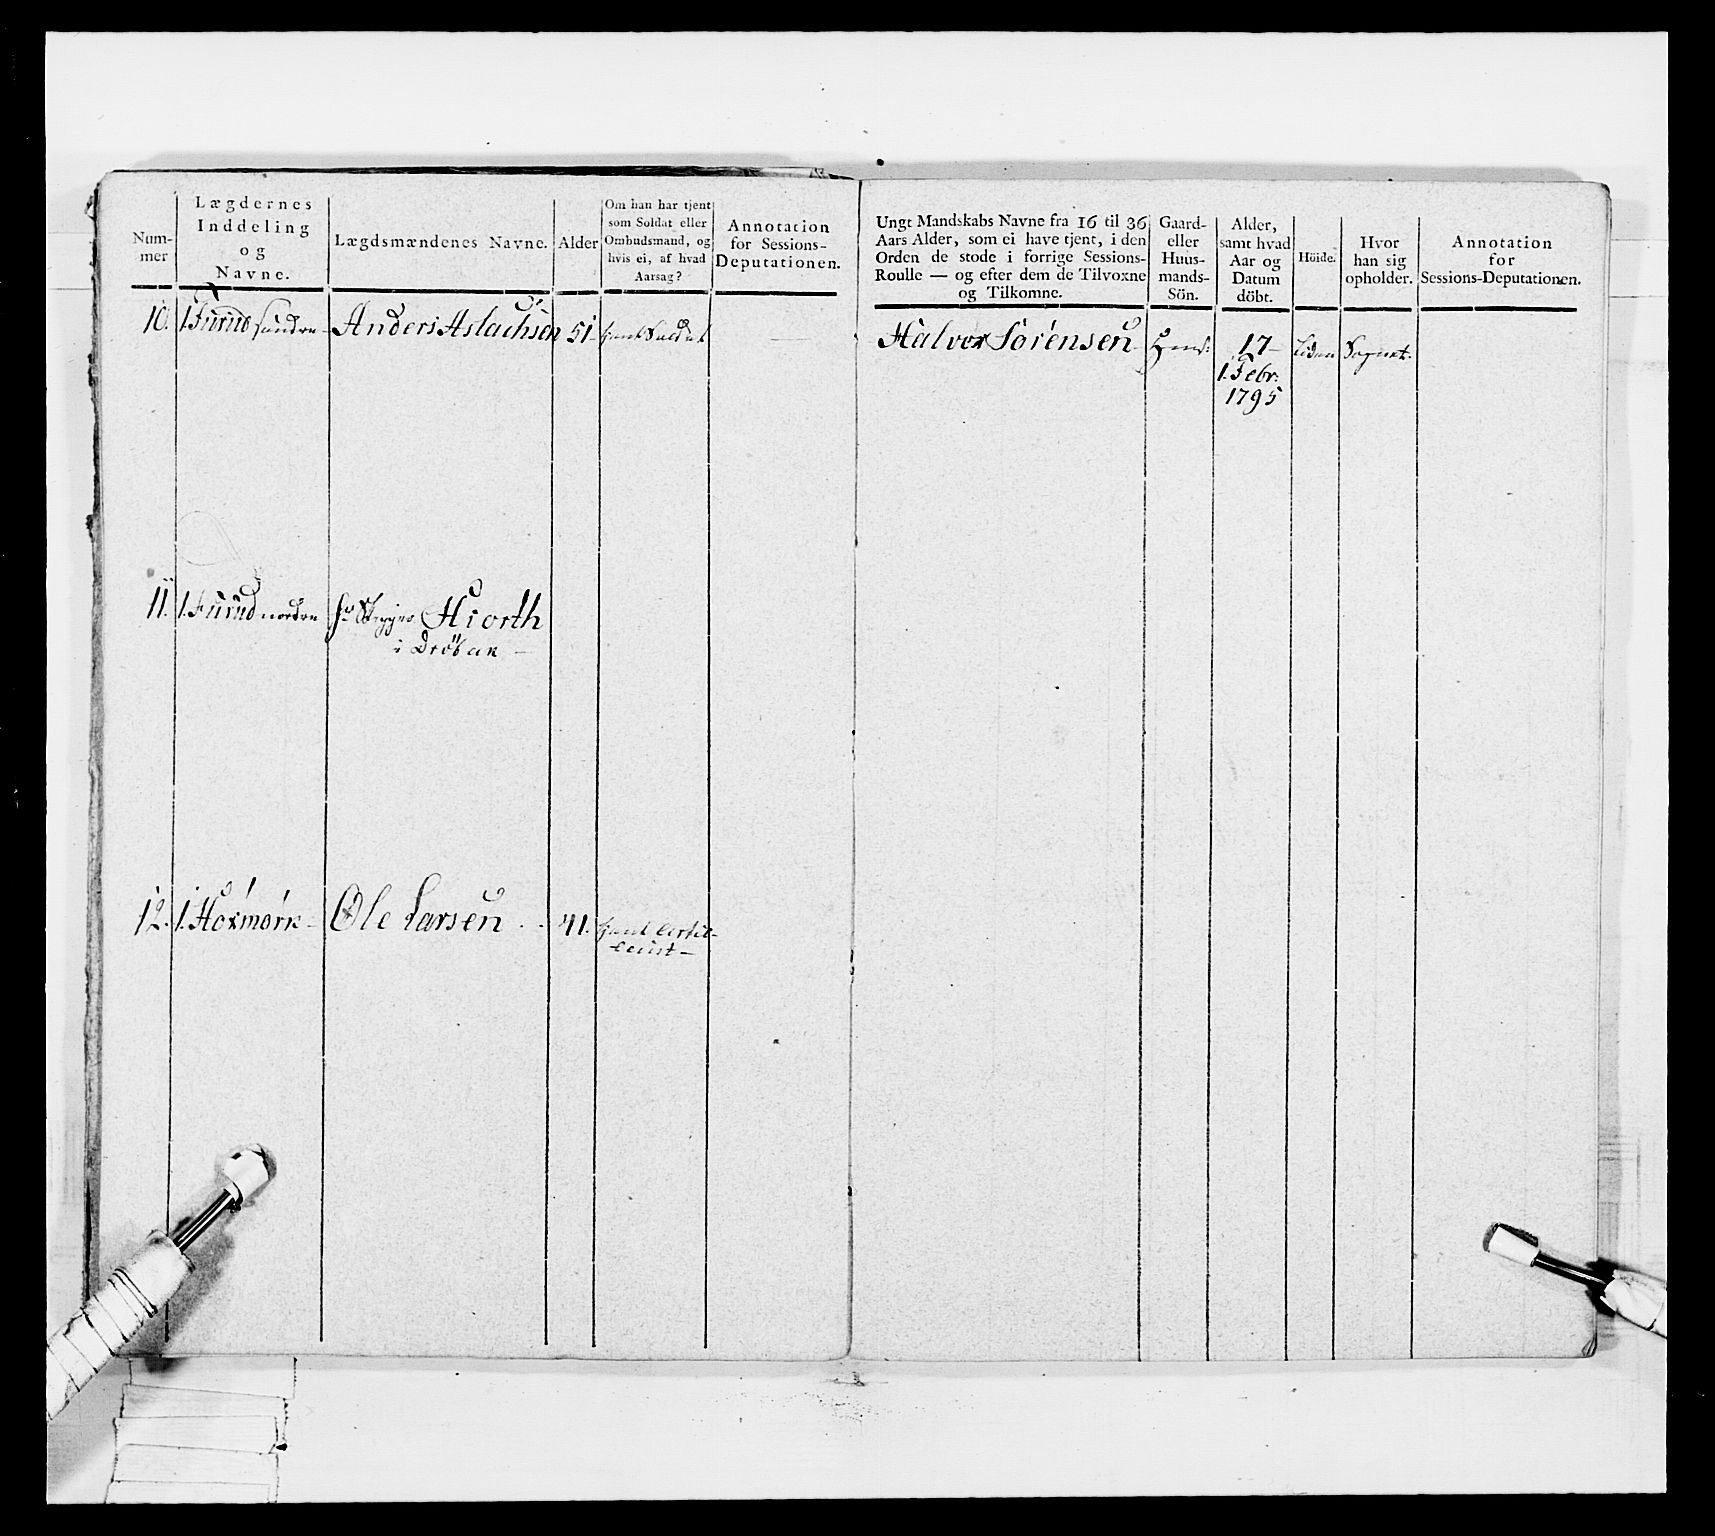 Num-
mer
Lægdernes
Inddeling
og
Navne.
Lægdsmændenes Navne.
Alder
Om han har tjent
som Soldat eller
Ombudsmand, og
hvis ei, af hvad
Aarsag?
Annotation
for Sessions-
Deputationen.
Ungt Mandskabs Navne fra 16 til 36
Aars Alder, som ei have tjent, i den
Orden de stode i forrige Sessions-
Roulle — og efter dem de Tilvoxne
og Tilkomne.
Gaard-
eller
Huus-
mands-
Sön.
Alder,
samt hvad
Aar og
Datum
döbt.
Höide.
Hvor
han sig
opholder.
Annotation
for
Sessions-Deputationen.
10. 1. Furud søndre - Anders Aslachsen 51 - tient Soldat
Halvor Sørensen - 17 - Liden Sognet.
1. Febr:
1795
11. 1. Furud nordre Hiorth
i Drøbak -
12. 1. Hoxmørk - Ole Larsen 41. tient